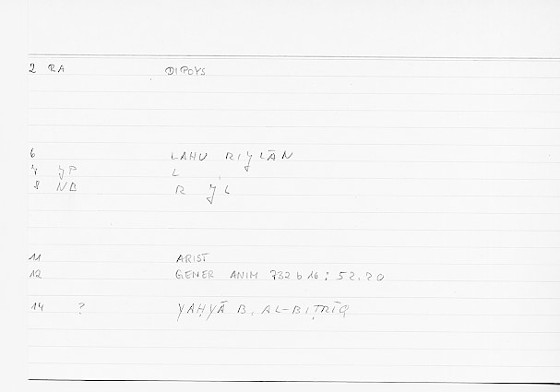 2 RA DIPOYS
6 LAHU RIǦLĀN
7 ǦP L
8 NB R Ǧ L
11 ARIST
12 GENER ANIM 732 b 16 : 52.20
14 ? YAḤYĀ B. AL-BIṬRĪQ